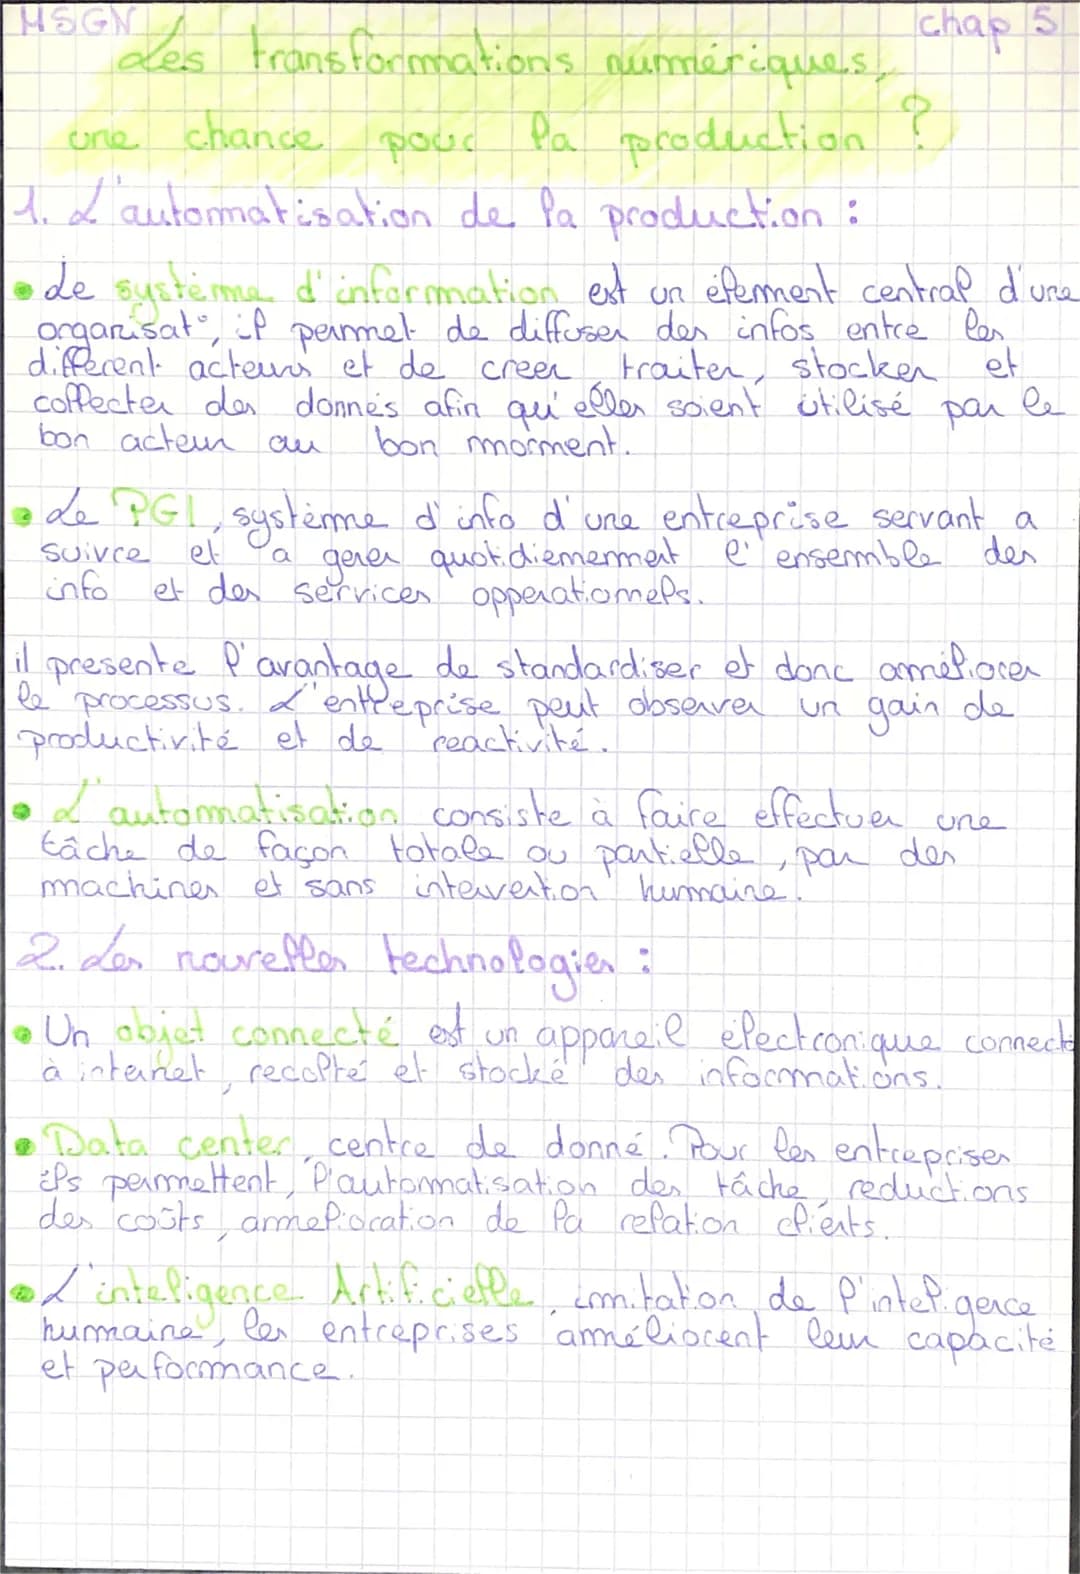 MSGN
chap 5
Les transformations numériques,
une chance pour la production ?
1. L'automatisation de la production :
• Le système d'information est un éferment central d'une
organisat°, il permet de diffuser des infos entre les
différent acteurs et de creer traiter, stocker et
collecter des donnés afin qu'elles soient utilisé par le
bon acteur au bon moment.
• Le PGI, système d'info d'une entreprise servant a
suivre et a gerer quotidiennement l'ensemble des
info et des services opperationnels.
il presente l'avantage de standardiser et donc améliorer
le processus. L'entreprise peut observer un gain de
productivité et de reactivité.
• L'automatisation consiste à faire effectuer une
tâche de façon totale ou partielle, par des
machines et sans intervention humaine.
2. Les nouvelles technologies :
• Un objet connecté est un appareil électronique connecté
à internet, recolté et stocké des informations.
• Data center, centre de donné. Pour les entreprises
ils permettent, l'automatisation des tâche, reductions
des coûts, amelioration de la relation clients.
• L'inteligence Artificielle, imitation de l'inteligence
humaine, les entreprises amméliorent leur capacité
et performance.